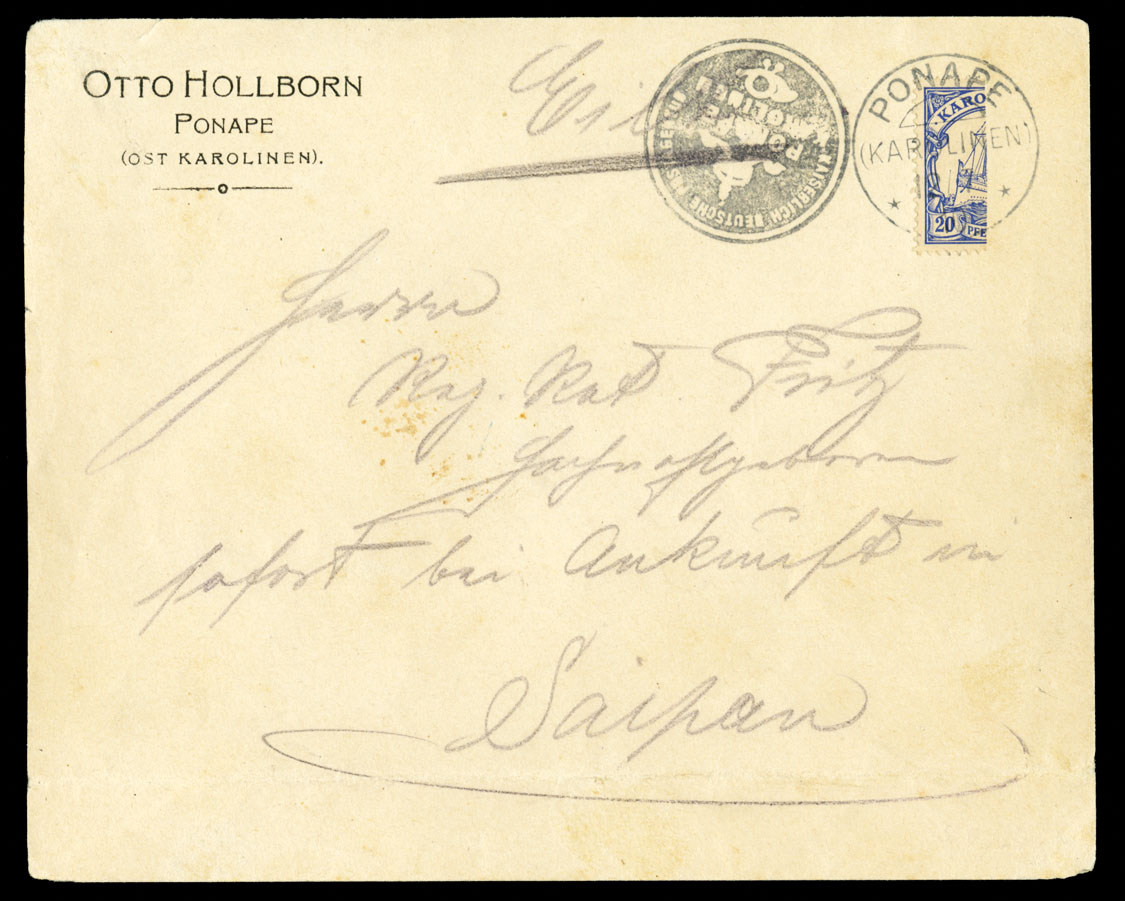 OTTO HOLLBORN
PONAPE
(OST KAROLINEN).
Eil
KAISERLICH DEUTSCHE
PONAPE
KAROLINEN
PONAPE
(KAROLINEN)
KARO
20 PFE
Herrn
Reg. Rat Fritz
Hochwohlgeboren
sofort bei Ankunft in
Saipan